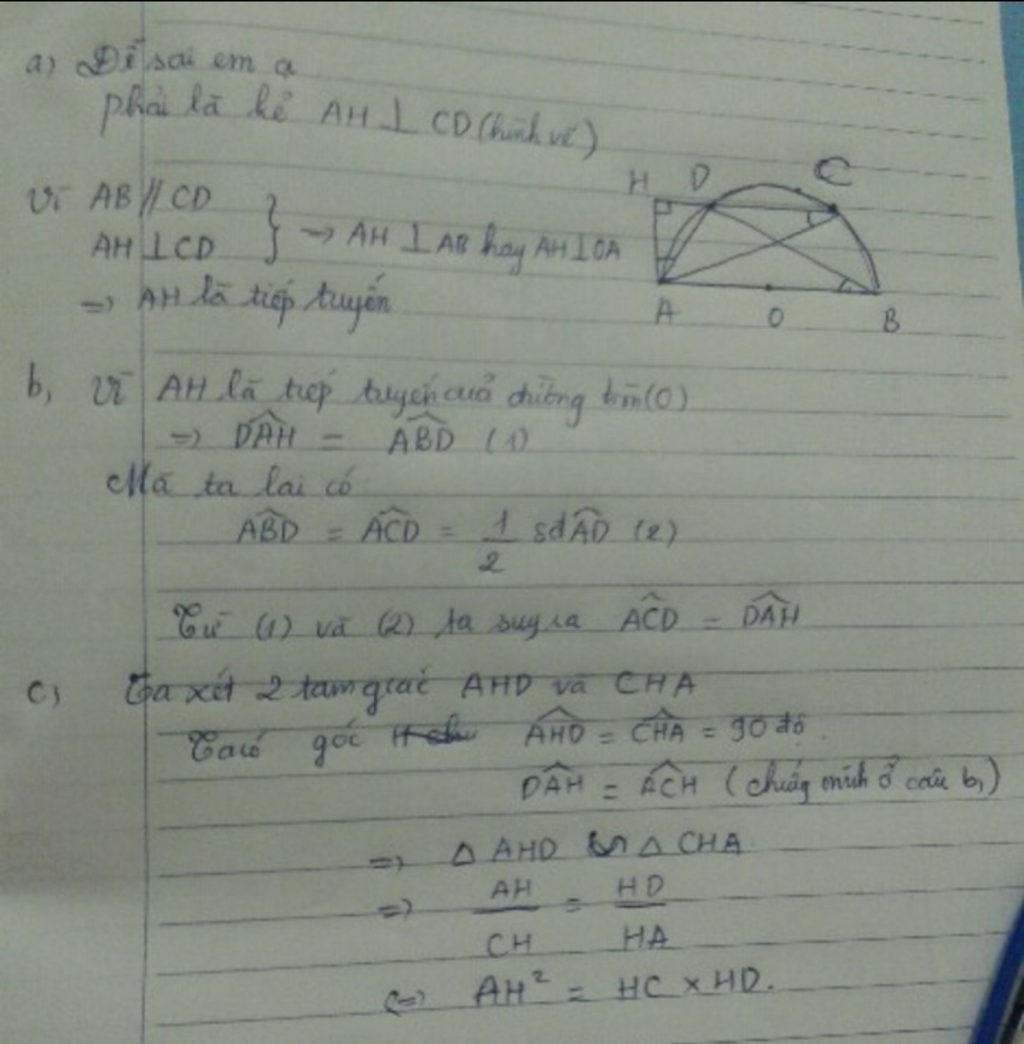 a) Đề sai em ạ
phải là kẻ AH ⊥ CD (hình vẽ)
H D C
Vì AB // CD
AH ⊥ CD } => AH ⊥ AB hay AH ⊥ OA
=> AH là tiếp tuyến
A O B
b, Vì AH là tiếp tuyến của đường tròn (O)
=> \widehat{DAH} = \widehat{ABD} (1)
Mà ta lại có
\widehat{ABD} = \widehat{ACD} = \frac{1}{2} sđ \widehat{AD} (2)
Từ (1) và (2) ta suy ra \widehat{ACD} = \widehat{DAH}
c, Ta xét 2 tam giác AHD và CHA
Ta có góc \widehat{AHD} = \widehat{CHA} = 90 độ.
\widehat{DAH} = \widehat{ACH} (chứng minh ở câu b,)
=> △ AHD ∽ △ CHA
=> \frac{AH}{CH} = \frac{HD}{HA}
<=> AH² = HC × HD.